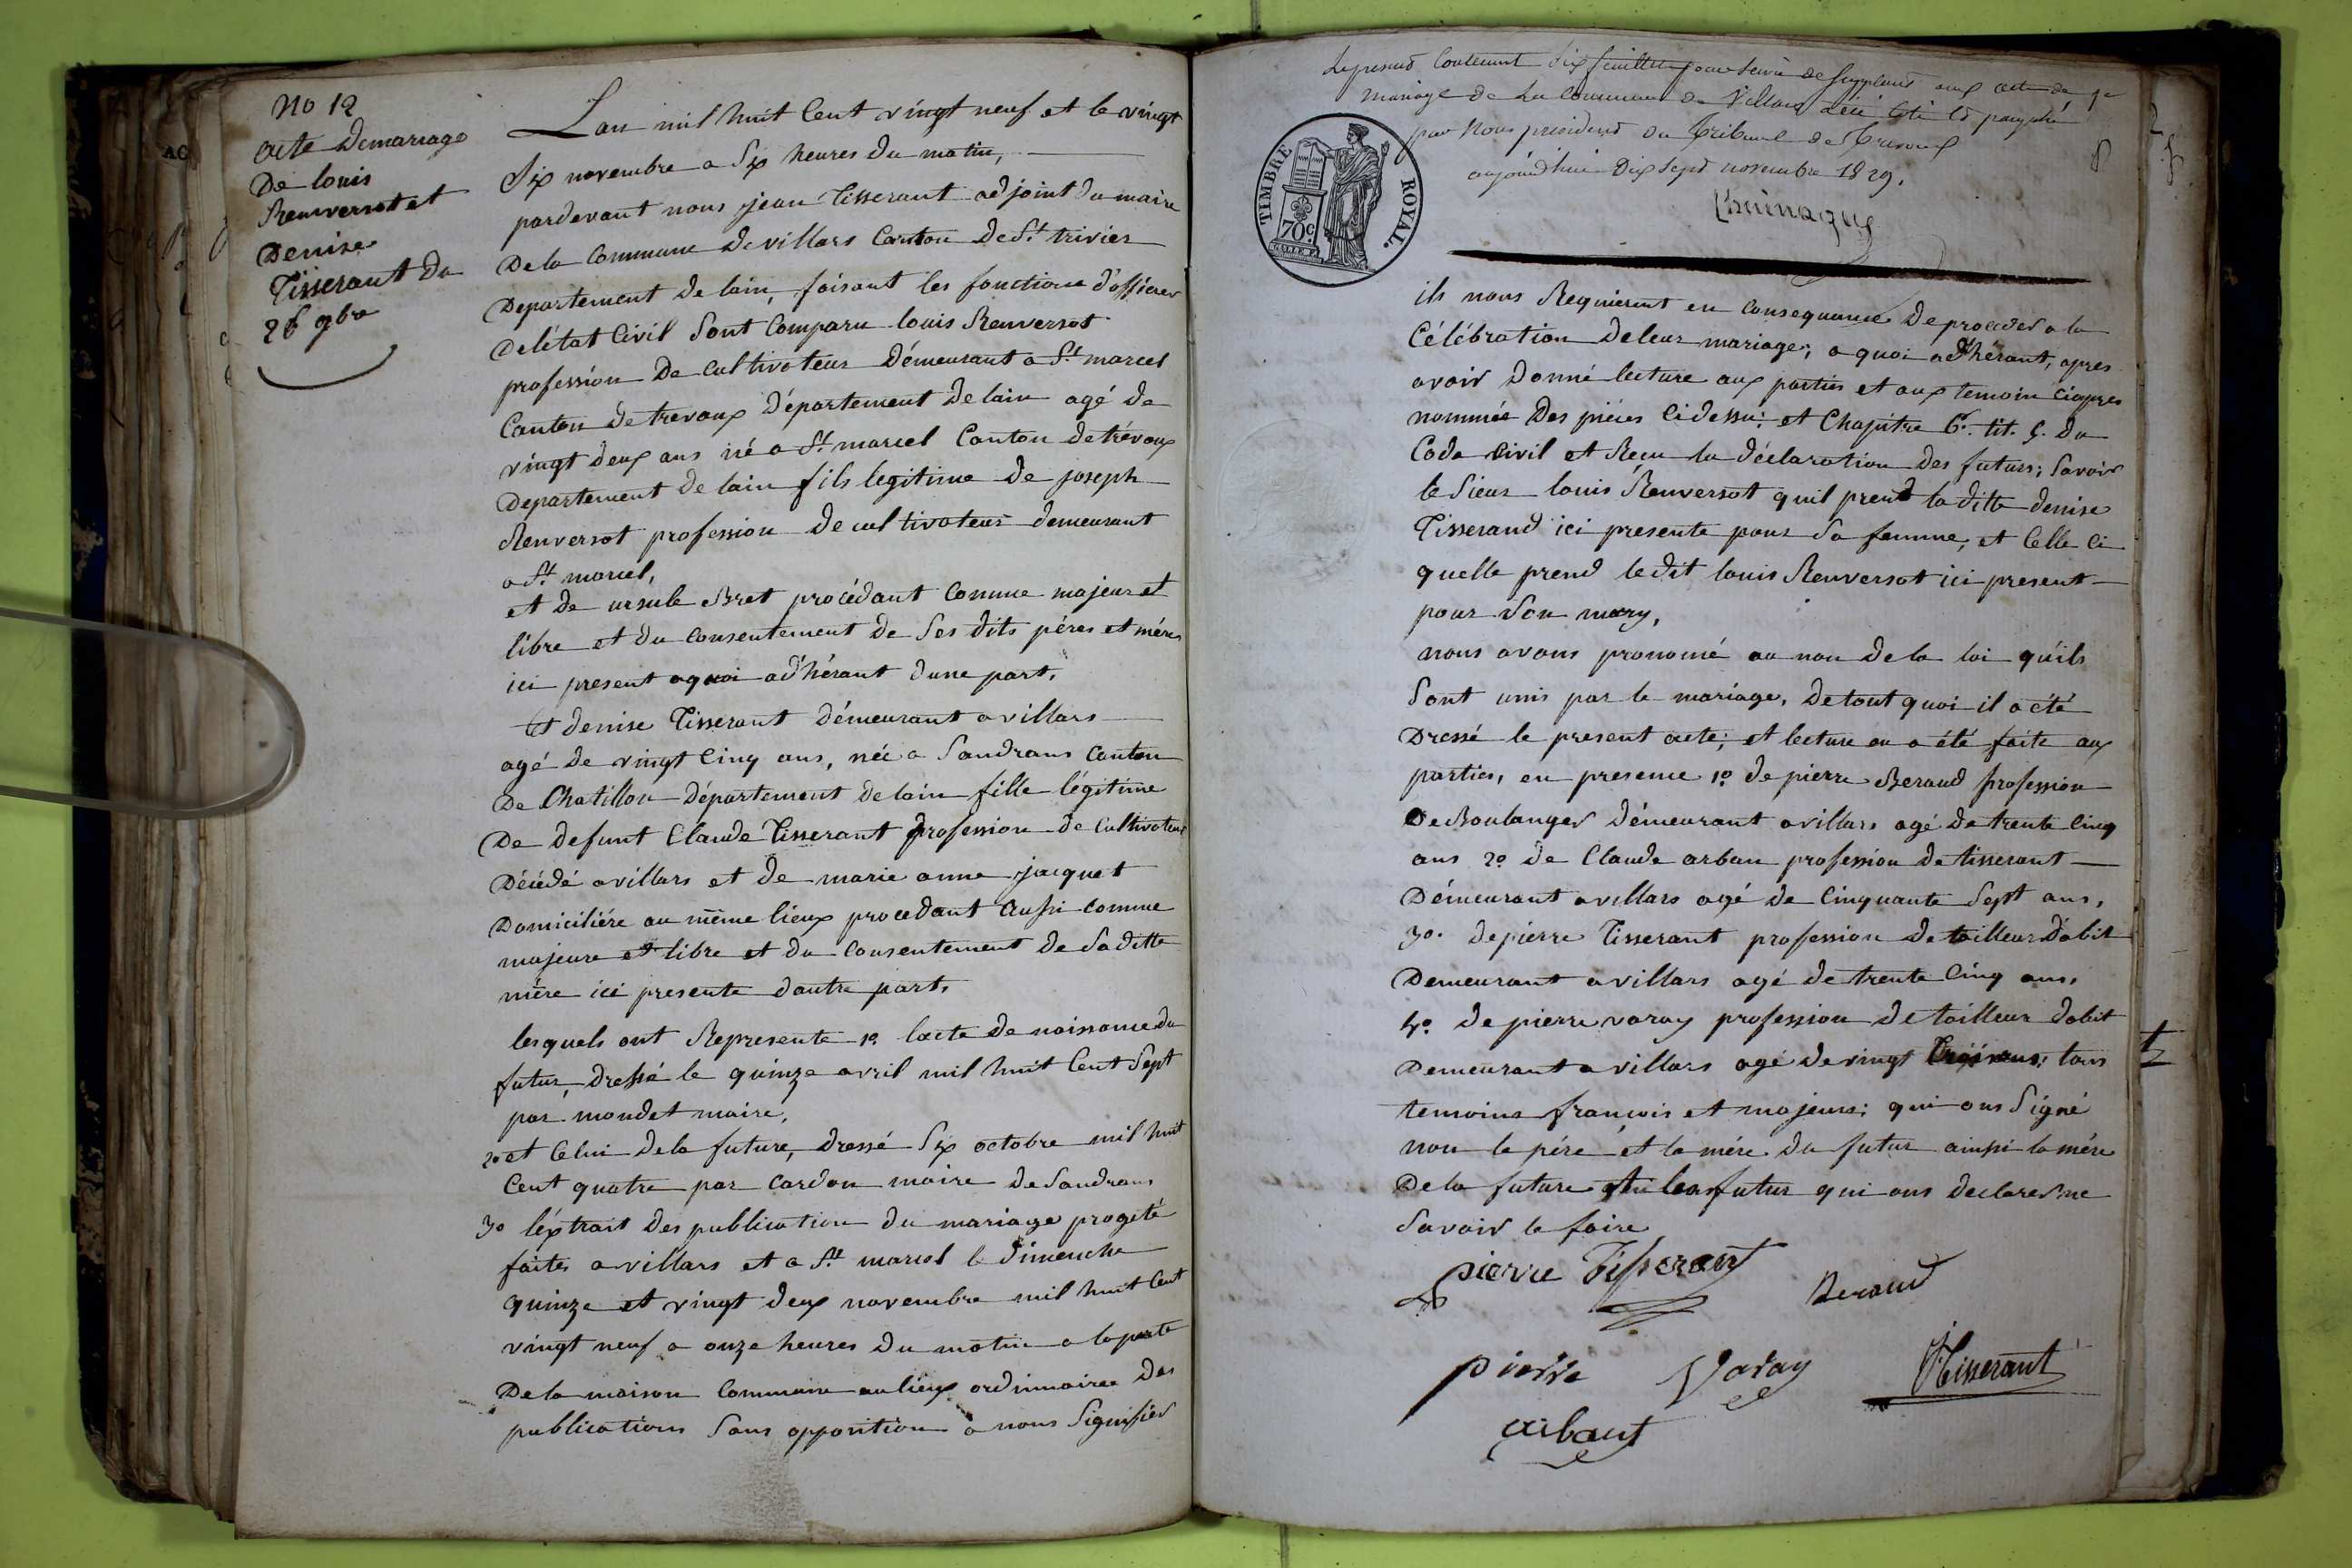 No 12
acte de mariage
De louis
Renversot et
Denise
Tisserant du
26 9bre
Lan mil huit Cent vingt neuf et le vingt
Six novembre a Six heures du matin,
pardevant nous jean Tisserant adjoint du maire
De la Commune de villars Canton de St trivier
Departement de lain, faisant les fonctions d'officier
De létat Civil Sont Comparu louis Renversot
profession De cultivateur Démeurant a St marcel
Canton de trevoux Département de lain agé de
vingt deux ans né a St marcel Canton de trévoux
Departement de lain fils legitime de joseph
Renversot profession de cultivateur demeurant
a St marcel,
et de ursule Bret procédant Comme majeur et
libre et du consentement de Ses dits péres et méres
ici present aquoi ad'hérant dune part.
Et denise Tisserant Démeurant a villars
agé de vingt Cinq ans, née a Sandrans Canton
De Chatillon Département de lain fille légitime
De defunt Claude Tisserant profession de Cultivateur
Décédé a villars et de marie anne jacquet
Domiciliére au même lieux procedant aussi comme
majeure et libre et du Consentement de Saditte
mére ici presente dautre part.
lesquels ont Represente 1o lacte de naissance du
futur, dressé le quinze avril mil huit Cent Sept
par mondet maire,
2o et Celui de la future, dressé Six octobre mil huit
Cent quatre par Cardon maire de Sandrans
3o léxtrait des publication du mariage progeté
faites a villars et a St marcel le dimenche
quinze et vingt deux novembre mil huit Cent
vingt neuf a onze heures du matin a la porte
De la maison Commune au lieux ordinnairee des
publications Sans opposition a nous Signifier
Le present Contenant Six feuillets pour Servir de Supplement aux actes de
mariage de La Commune de Villars a été Coté et paraphé
par Nous president du Tribunal de Trevoux
aujourd'hui Dix Sept novembre 1829.
TIMBRE ROYAL.
70c.
ils nous Requierent en consequence De proceder a la
Célébration de leur mariage; a quoi ad'hérant, apres
avoir Donné lecture aux parties et aux temoin ciapres
nommée Des piéces Cidessu; et Chapitre 6. tit. 5. du
Code Civil et Recu la déclaration des futurs; Savoir
le Sieur louis Renversot quil prend la ditte denise
Tisserand ici presente pour Sa femme, et Celle Ci
quelle prend le dit louis Renversot ici present
pour Son mary,
nous avons prononcé au non de la loi quils
Sont unis par le mariage, De tout quoi il a été
Dressé le present acte; et lecture en a été faite aux
parties, en presence 1o de pierre Beraud profession
De Boulanger Démeurant a villars agé de trente Cinq
ans 2o de Claude arban profession de tisserant
Démeurant a villars agé de Cinquante Sept ans,
3o. de pierre Tisserant profession de tailleur dabit
Demeurant a villars agé de trente Cinq ans,
4o de pierre varay profession de tailleur dabit
Demeurant a villars agé de vingt trois ans; tous
temoins francois et majeurs; qui ons Signé
non le pére et la mére du futur ainssi la mére
De la future et les futur qui ons declarer ne
Savoir le faire
pierre Tisserant
Beraud
pierre Varay
J Tisserant
arbant